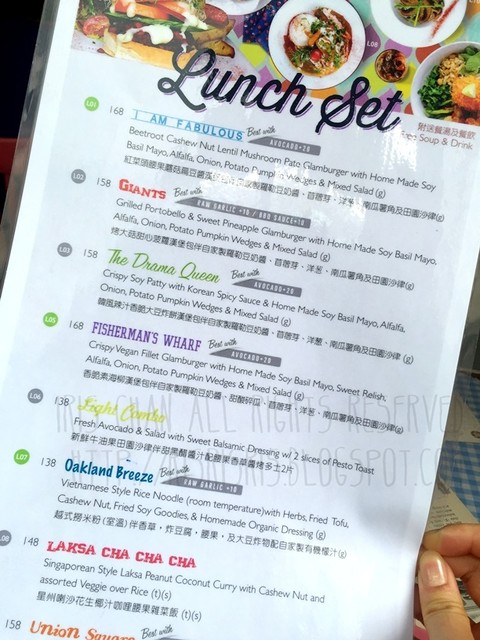 Lunch Set
附送餐湯及餐飲
Free Soup & Drink
L01 168 I AM FABULOUS Best with AVOCADO+20
Beetroot Cashew Nut Lentil Mushroom Pato Glamburger with Home Made Soy
Basil Mayo, Alfalfa, Onion, Potato Pumpkin Wedges & Mixed Salad (g)
L02 158 GIANTS Best with RAW GARLIC +10 / BBQ SAUCE+10
Grilled Portobello & Sweet Pineapple Glamburger with Home Made Soy Basil Mayo,
Alfalfa, Onion, Potato Pumpkin Wedges & Mixed Salad (g)
烤大菇甜心菠蘿漢堡伴自家製羅勒豆奶醬、苜蓿芽、洋葱、南瓜薯角及田園沙律(g)
L03 158 The Drama Queen Best with AVOCADO+20
Crispy Soy Patty with Korean Spicy Sauce & Home Made Soy Basil Mayo, Alfalfa,
Onion, Potato Pumpkin Wedges & Mixed Salad (g)
韓風辣汁香脆大豆炸餅漢堡伴自家製羅勒豆奶醬、苜蓿芽、洋葱、南瓜薯角及田園沙律 (g)
L05 168 FISHERMAN'S WHARF Best with AVOCADO+20
Crispy Vegan Fillet Glamburger with Home Made Soy Basil Mayo, Sweet Relish,
Alfalfa, Onion, Potato Pumpkin Wedges & Mixed Salad (g)
香脆素海柳漢堡伴自家製羅勒豆奶醬、甜酸碎瓜、苜蓿芽、洋葱、南瓜薯角及田園沙律(g)
L06 138 Light Combo
Fresh Avocado & Salad with Sweet Balsamic Dressing w/ 2 slices of Pesto Toast
新鮮牛油果田園沙律伴甜黑醋醬汁配腰果香草醬烤多士2片
L07 138 Oakland Breeze Best with RAW GARLIC +10
Vietnamese Style Rice Noodle (room temperature)with Herbs, Fried Tofu,
Cashew Nut, Fried Soy Goodies, & Homemade Organic Dressing (g)
越式撈米粉 (室溫) 伴香草，炸豆腐，腰果，及大豆炸物配自家製有機檬汁(g)
L08 148 LAKSA CHA CHA CHA
Singaporean Style Laksa Peanut Coconut Curry with Cashew Nut and
assorted Veggie over Rice (t)(s)
星州喇沙花生椰汁咖喱腰果雜菜飯 (t)(s)
158 Union Square Best with